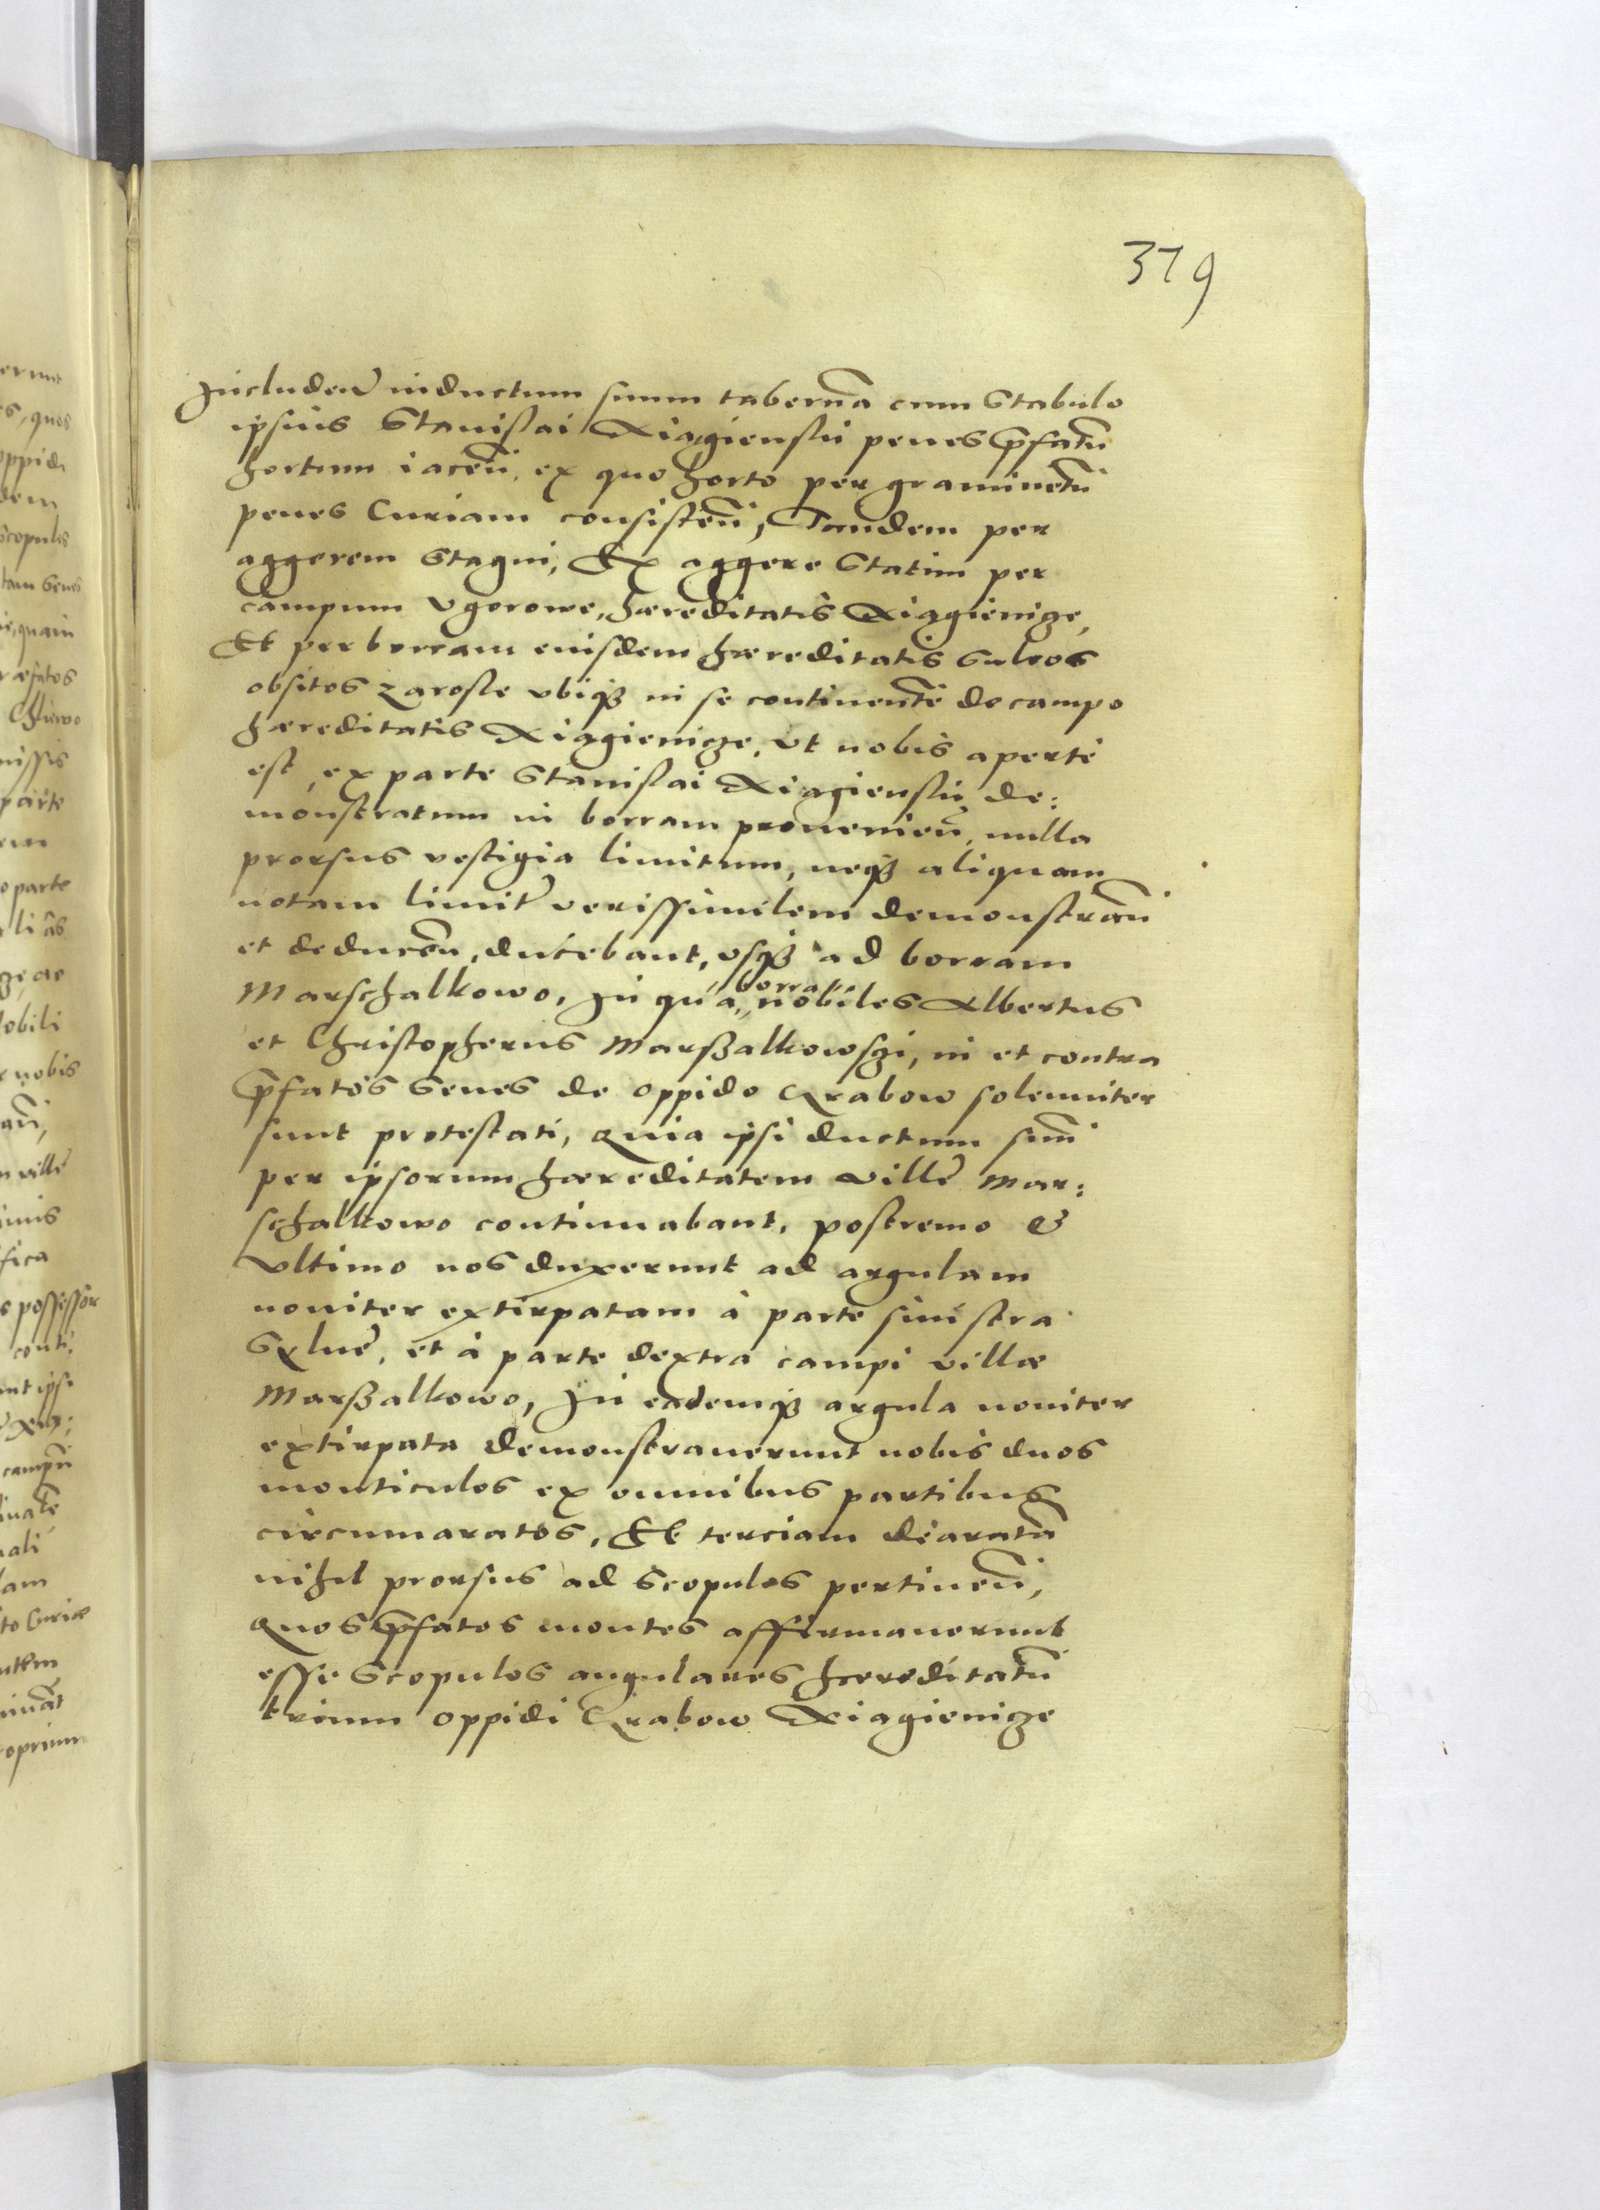 379
Includen̄ inductum suum tabernā cum stabulo
ipsius Stanislai Xiągienskii penes p̄fatū
hortum iacen̄, ex quo horto per graminetū
penes Curiam consisten̄, Tandem per
aggerem stagni, Ex aggere statim per
campum Vgorowe, hæreditatis Xiągienicze,
Et per borram eiusdem hæreditatis sulcos
obsitos zarosle vbiqȝ in se continentē de campo
hæreditatis Xiągienicze, vt nobis apertè
est ex parte Stanislai Xiągienskii de:
monstratum in borram prouenien̄, nulla
prorsus vestigia limitum, neqȝ aliquam
notam limit̄ verissimilem demonstran̄
et deducen̄, ducebant, vsqȝ ad borram
Marschalkowo, In qua borra nobiles Albertus
et Christopherus Marßalkowsgi, in et contra
p̄fatos senes de oppido Grabow solenniter
sunt protestati, quia ipsi ductum suū
per ipsorum hæreditatem villę Mar:
schalkowo continuabant, postremo &
vltimo nos duxerunt ad argulam
nouiter extirpatam à parte sinistra
Syluę, et à parte dextra campi villæ
Marßalkowo, In eademqȝ argula nouiter
extirpata demonstrauerunt nobis duos
monticulos ex omnibus partibus
circumaratos, Et terciam dearatā
nihil prorsus ad scopulos pertinen̄,
quos p̄fatos montes affirmauerunt
esse scopulos angulares hæreditatū
trium oppidi Grabow Xiągienicze